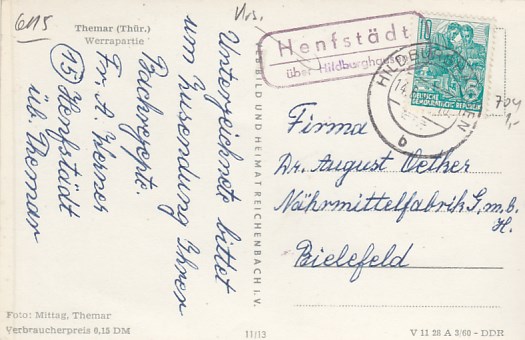 6115
Vlrs.
Themar (Thür.)
Werrapartie
Unterzeichnete bittet
um Zusendung Ihrer
Backrezepte.
Frl. A. Heiner
(15) Henfstädt
üb. Themar
VEB BILD UND HEIMAT REICHENBACH i. V.
Henfstädt
über Hildburghausen
HILDBURGHAUSEN
14
b
10
DEUTSCHE
DEMOKRATISCHE REPUBLIK
704
1,-
Firma
Dr. August Oetker
Nährmittelfabrik G.m.b.
H.
Bielefeld
Foto: Mittag, Themar
Verbraucherpreis 0,15 DM
11/13
V 11 28 A 3/60 - DDR